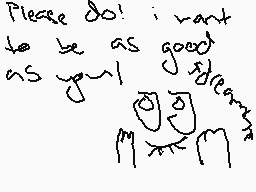 Please do! i want
to be as good
as you!
*dreamy*